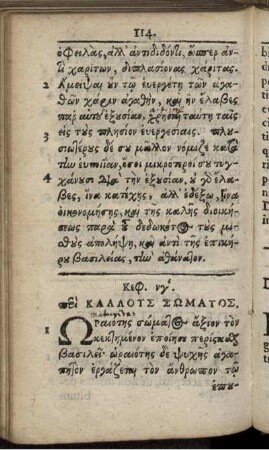 114.
ὀφειλας, ἀλλ' ἀντιδιδόντι, ὥσπερ ἀν-
τὶ χαρίτων, διπλασίονας χάριτας.
2 Ἀμειψαι ȣ̓ν τῷ εὐεργέτῃ τῶν ἀγα-
θῶν χάριν ἀγαθὴν, καὶ ἣν ἔλαβες
παρ' αὐτȣ͂ ἐξȣσίαν, χρῆσαι ταύτῃ ταῖς
3 εἰς τȣ̀ς πλησίον εὐεργεσίαις. πλȣ-
σιώτερος δὲ σȣ μᾶλλον νόμιζε κατὰ
τὴν εὐποιίαν, ὅσοι μικρότεροι σȣ τυγ-
4 χάνȣσι διὰ τὴν ἐξȣσίαν, ȣ̓ γδ ἔλα-
βες, ἵνα κατέχῃς, ἀλλ' ἐδέξω, ἵνα
οἰκονομήσῃς, καὶ τῆς καλῆς διοικη-
σεως παρὰ τȣ͂ δεδωκότος τȣ̀ς μι-
σθȣ̀ς ἀπολήψῃ, καὶ ἀντὶ τῆς ἐπικη-
ρȣ βασιλείας, τὴν ἀθάνατον.
Κεφ. νγ'.
περὶ ΚΑΛΛΟΥΣ ΣΩΜΑΤΟΣ,
1 Ὡραιότης σώματος ἄξιον τὸν
κεκτημένον ἐποίησε περίσκοπȣ
βασιλεῖ· ὡραιότης δὲ ψυχῆς ἀγα-
πητὸν ἐργάζεται τὸν ἄνθρωπον τῷ
ἐπȣ-